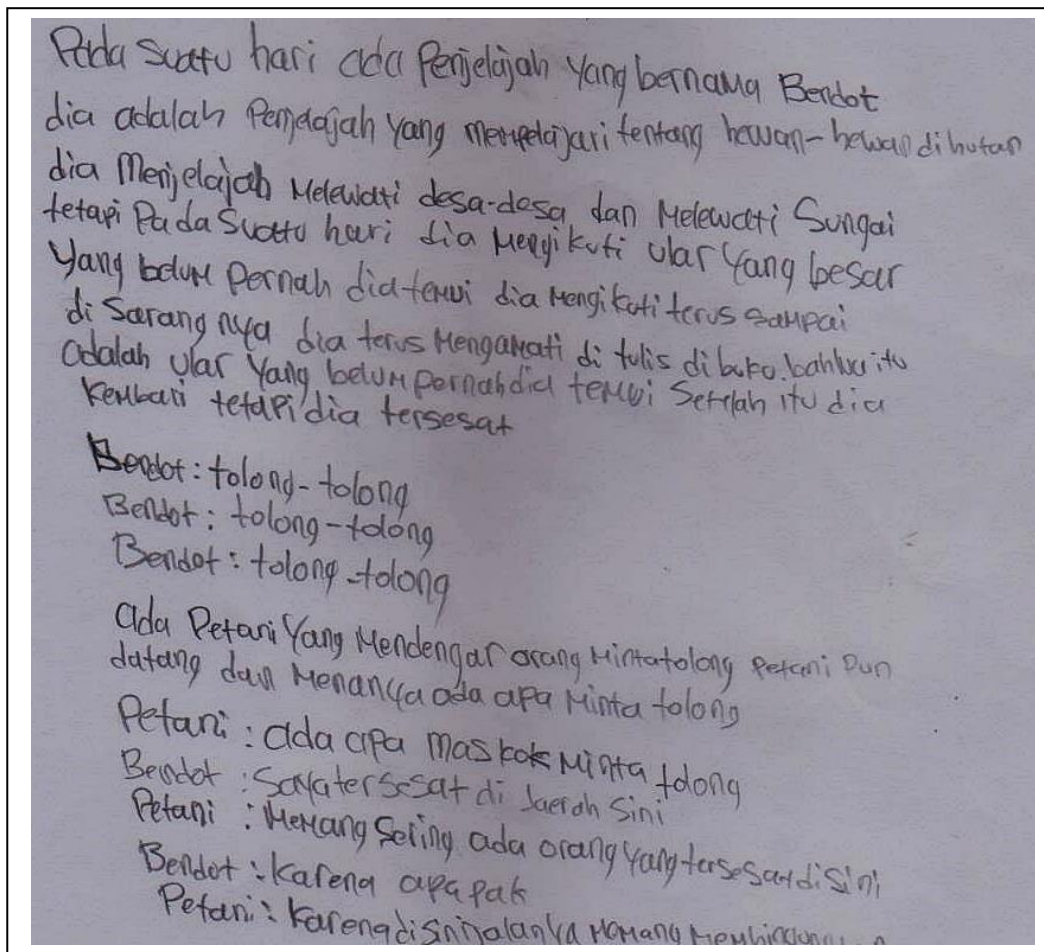 Pada Suatu hari ada Penjelajah Yang bernama Bendot
dia adalah Penjelajah Yang mempelajari tentang hewan-hewan dihutan
dia Menjelajah Melewati desa-desa dan Melewati Sungai
tetapi Pada Suatu hari dia Mengikuti ular Yang besar
Yang belum Pernah dia temui dia Mengikuti terus sampai
di Sarang nya dia terus Mengamati di tulis di buku bahwa itu
adalah ular Yang belum pernah dia temui Setelah itu dia
Kembali tetapi dia tersesat
Bendot: tolong-tolong
Bendot: tolong-tolong
Bendot: tolong-tolong
ada Petani Yang Mendengar orang Minta tolong Petani Pun
datang dan Menanya ada apa Minta tolong
Petani: ada apa mas kok Minta tolong
Bendot: Saya tersesat di daerah Sini
Petani: Memang Sering ada orang Yang tersesat di Sini
Bendot: Karena apa pak
Petani: Karena disini jalanya Memang